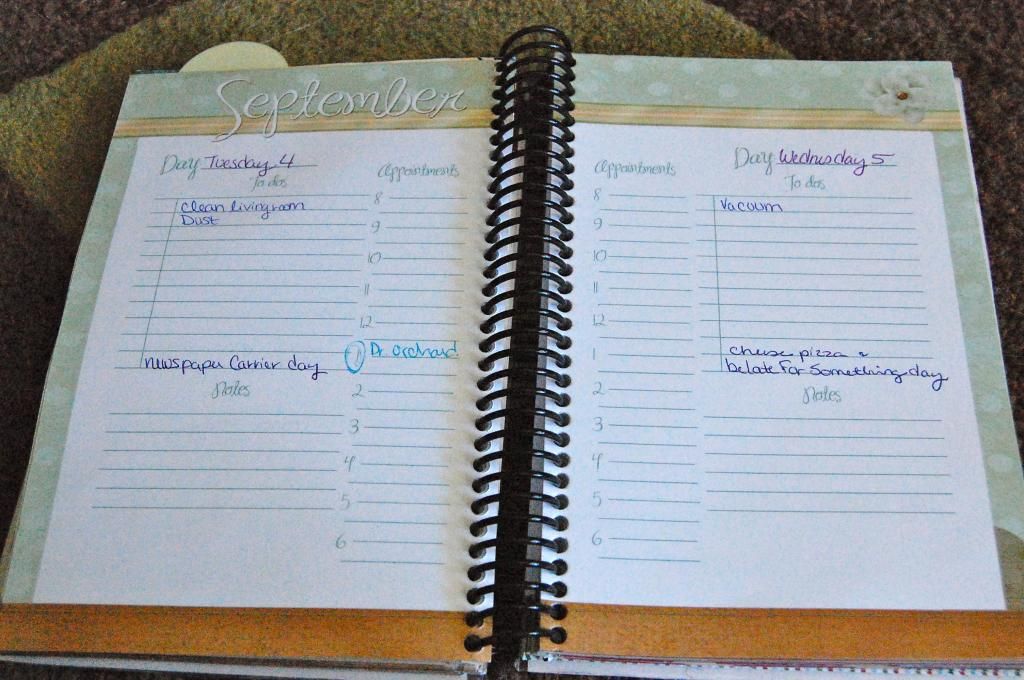 September
Day Tuesday 4
To dos
Clean livingroom
Dust
newspaper Carrier day
Notes
Appointments
8
9
10
11
12
1 Dr. Orchard
2
3
4
5
6
Appointments
8
9
10
11
12
1
2
3
4
5
6
Day Wednesday 5
To dos
Vacuum
cheese pizza &
belate For Something day
Notes